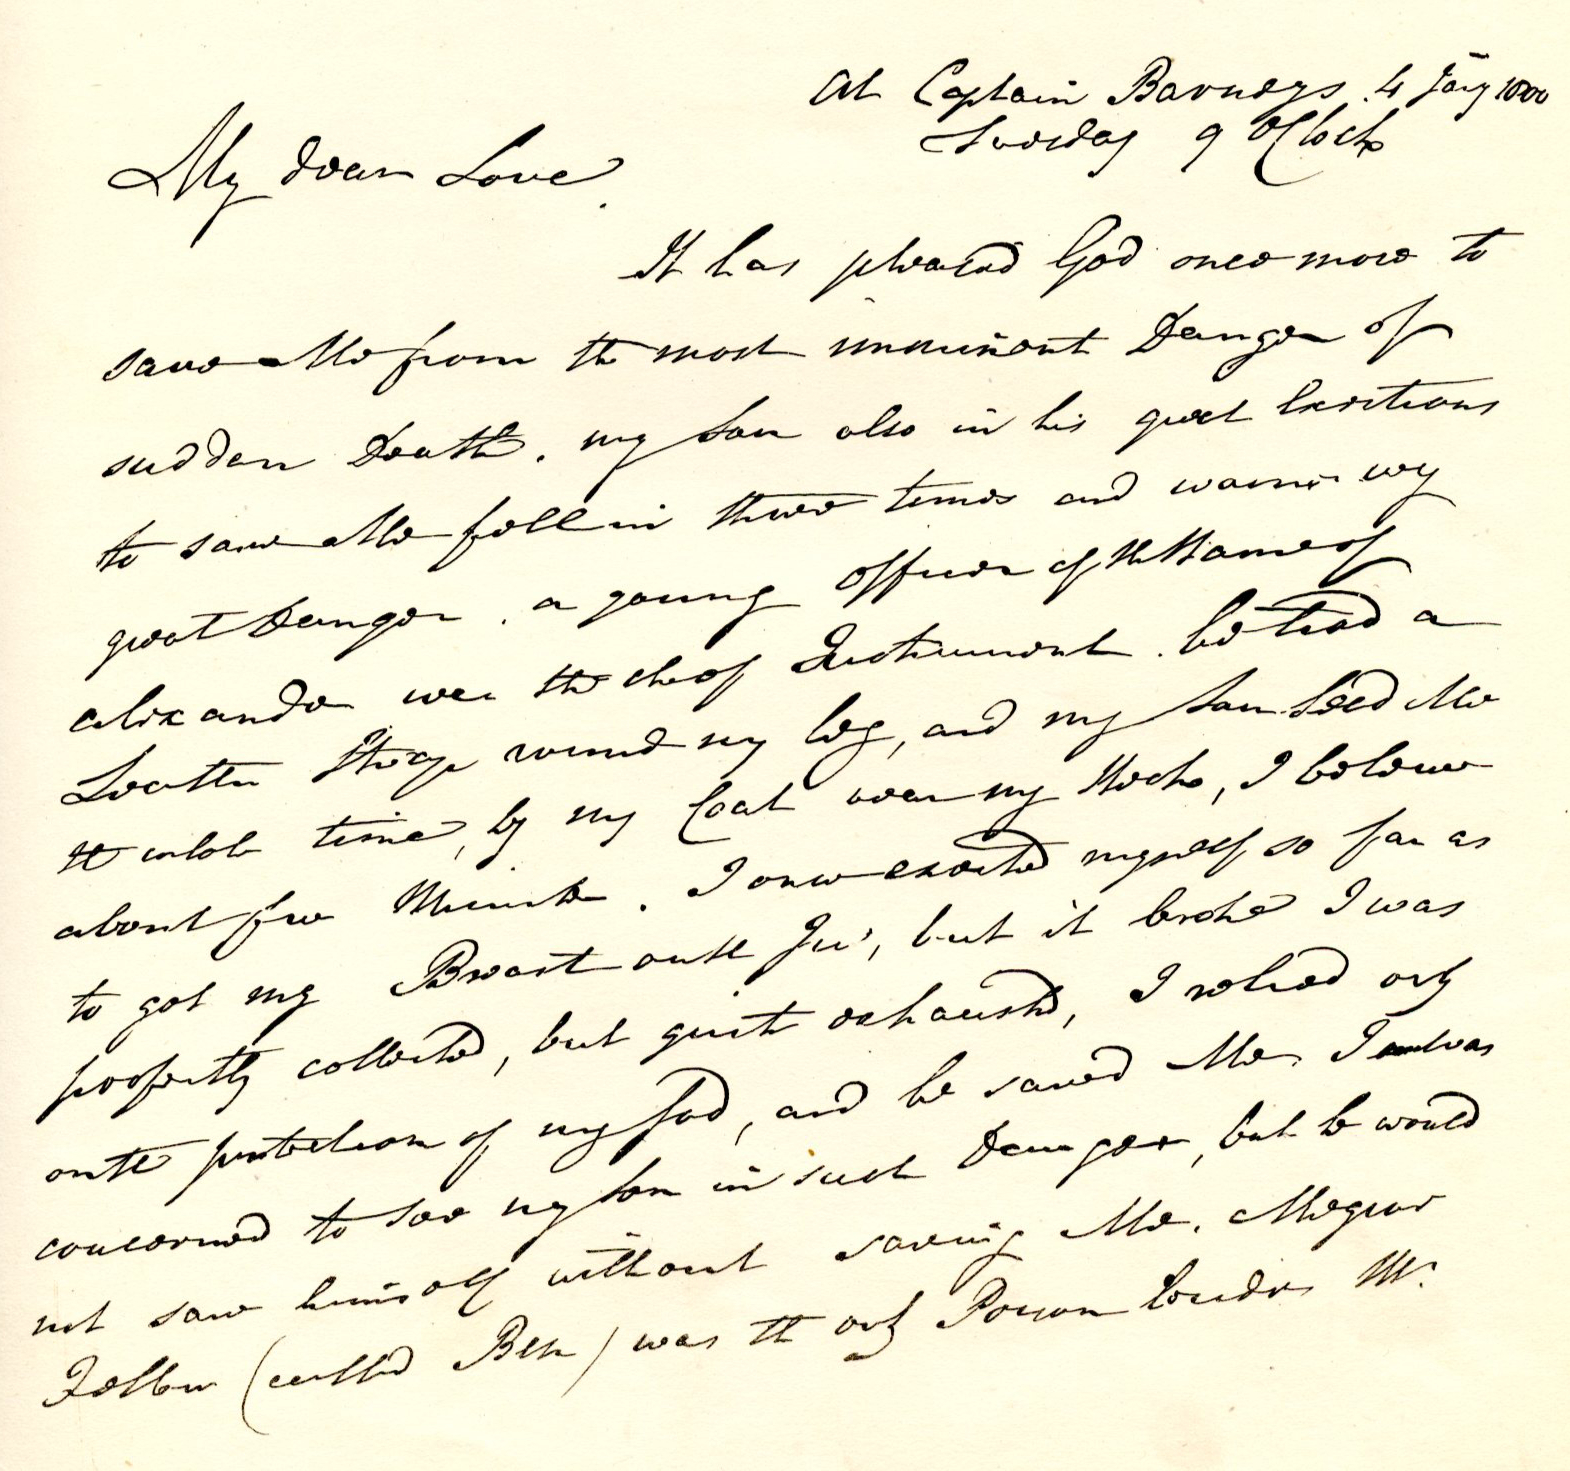 At Captain Barneys 4 Jany 1800
Tuesday 9 OClock
My dear Love.
It has pleased God once more to
save Me from the most imminent Danger of
sudden Death. my Son also in his great Exertions
to save Me fell in three times and was in very
great Danger. a young Officer of the Name of
Alixander was the cheef Instrument. he tied a
Leather Strap round my leg, and my Son held Me
the whole time, by my Coat near my Neck, I beleive
about five Minuts. I once exerted myself so far as
to get my Breast on the Ice, but it broke I was
perfectly collected, but quite exhausted, I relied only
on the protection of my God, and he saved Me. I was
concerned to see my Son in such Danger, but he would
not save himself without saving Me. A Negroe
Fellow (called Ben) was the only Person besides Mr.